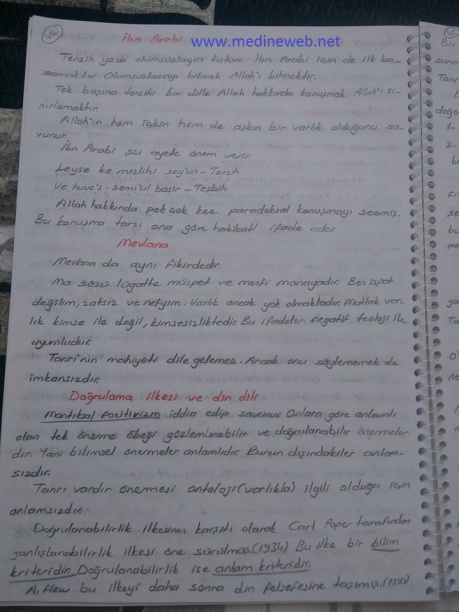 İbn Arabi
www.medineweb.net
Tenzih yada olumsuzlayıcı tutum İbn Arabi için de ilk ba-
samaktır. Olumsuzlamayı bilmek Allah'ı bilmektir.
Tek başına tenzihi bir dille Allah hakkında konuşmak Allah'ı sı-
nırlamaktır.
Allah'ın hem içkin hem de aşkın bir varlık olduğunu sa-
vunur.
İbn Arabi şu ayete önem verir
Leyse ke mislihi şey'ün - Tenzih
Ve huve's - semi'ul basir - Teşbih
Allah hakkında pek çok kez paradoksal konuşmayı seçmiş.
Bu konuşma tarzı ona göre hakikati ifade eder
Mevlana
Mevlana da aynı fikirdedir.
Ma sözü lügatte müspet ve menfi manayadır. Ben ispat
değilim, zatsız ve nefyim. Varlık ancak yok olmaktadır. Mutlak var-
lık kimse ile değil, kimsesizliktedir. Bu ifadeler negatif teoloji ile
uyumludur.
Tanrı'nın mahiyeti dile gelemez. Ancak onu söylememek de
imkansızdır.
Doğrulama ilkesi ve din dili
Mantıksal pozitivizm iddia edip savunur. Onlara göre anlamlı
olan tek önerme öbeği gözlemlenebilir ve doğrulanabilir önermeler
dir. Yani bilimsel önermeler anlamlıdır. Bunun dışındakiler anlam-
sızdır.
Tanrı vardır önermesi ontoloji (varlıkla) ilgili olduğu için
anlamsızdır.
Doğrulanabilirlik ilkesinin karşıtı olarak Carl Poper tarafından
yanlışlanabilirlik ilkesi öne sürülmüş. (1934) Bu ilke bir bilim
kriteridir. Doğrulanabilirlik ise anlam kriteridir.
A. Flew bu ilkeyi daha sonra din felsefesine taşımış. (1950)